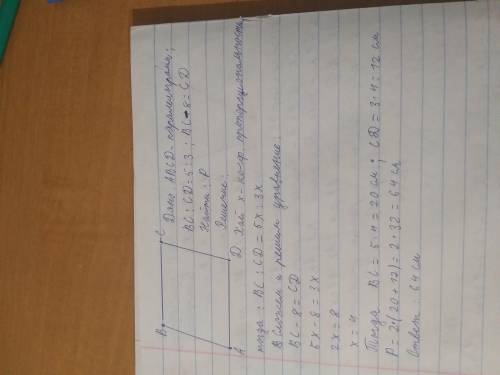 B
C
A
D
Дано: ABCD - параллелограмм;
BC : CD = 5 : 3 ; BC - 8 = CD
Найти: P
Решение:
Хай x - коэф. пропорциональности,
тогда : BC : CD = 5x : 3x
Сложем и решим уравнение:
BC - 8 = CD
5x - 8 = 3x
2x = 8
x = 4
Тогда BC = 5 · 4 = 20 см ; CD = 3 · 4 = 12 см
P = 2 · (20 + 12) = 2 · 32 = 64 см
Ответ : 64 см